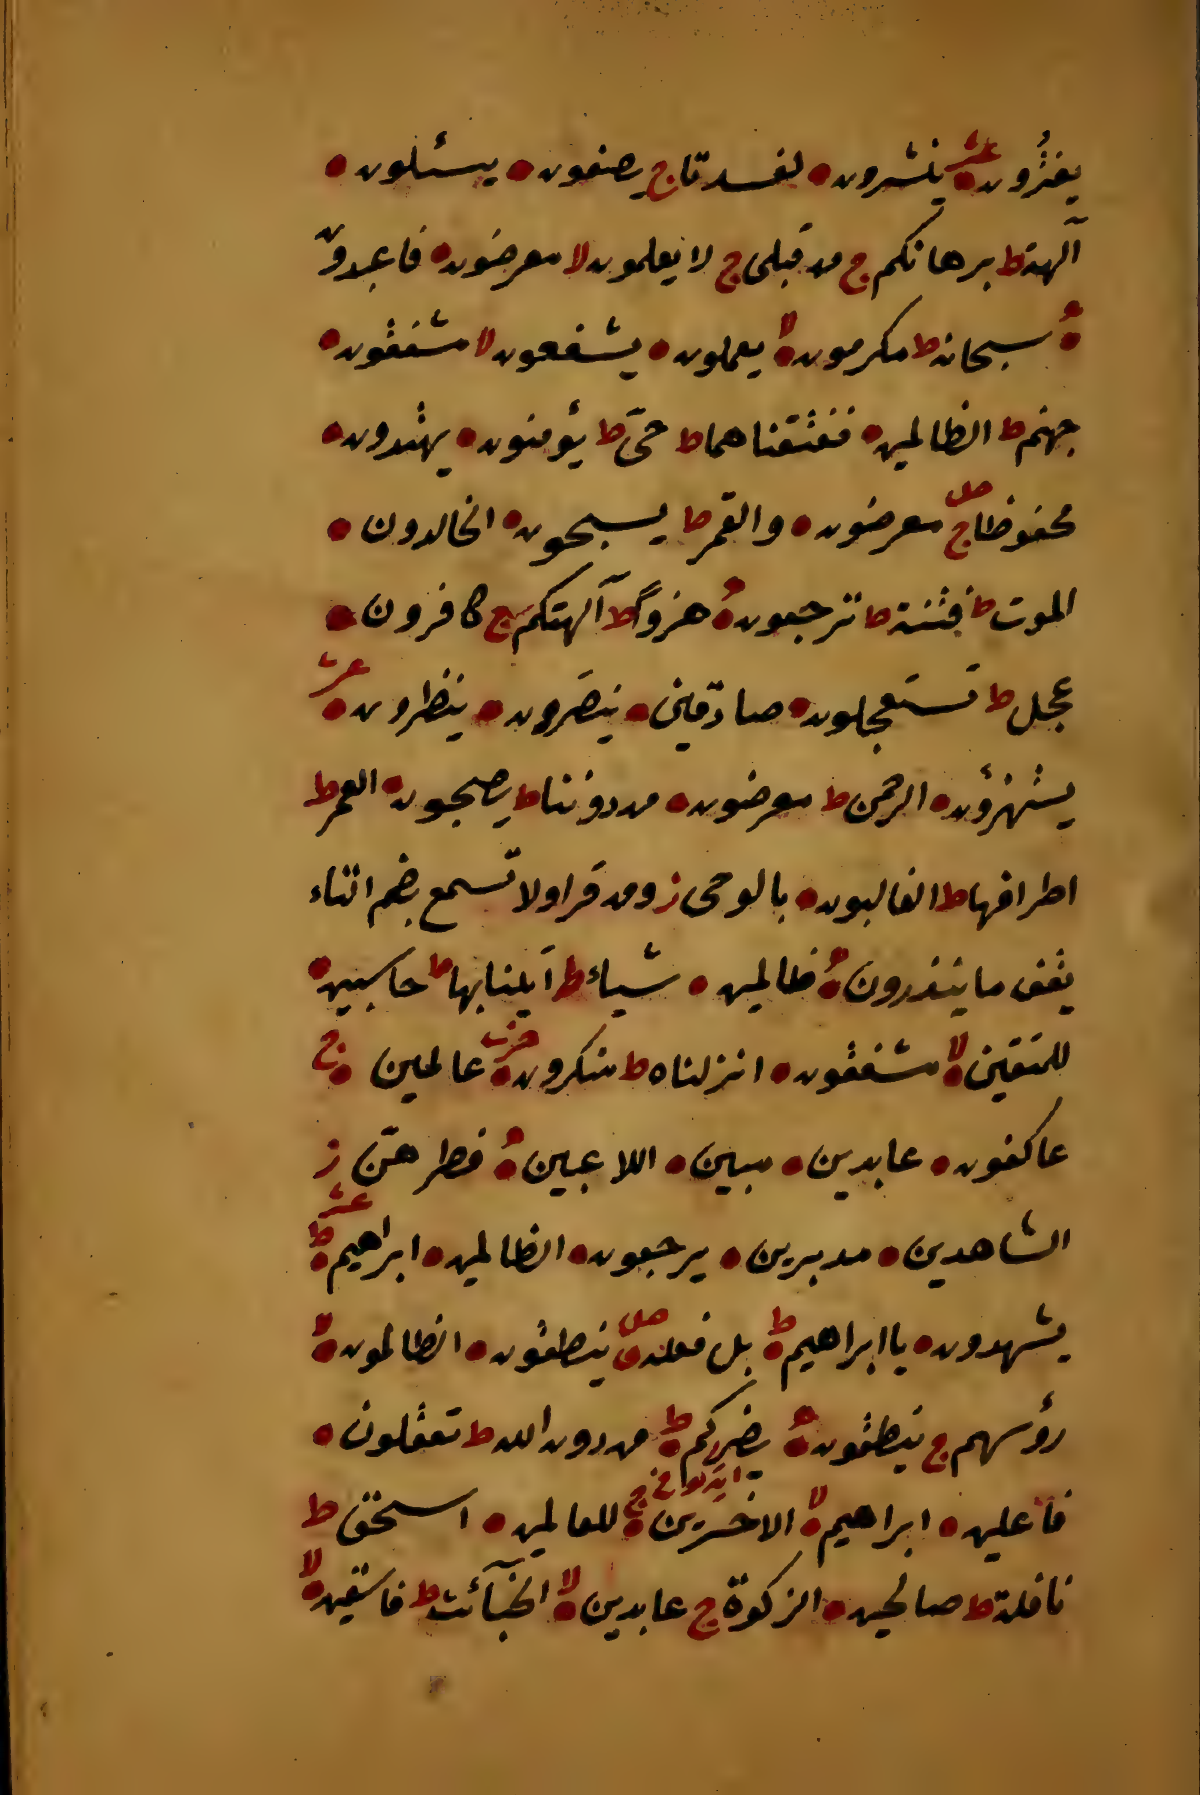 يفترون عشر ينشرون لفسدتا ج يصفون يسئلون
آلهة ط برهانكم ج من قبلى ج لا يعلمون لا معرضون فاعبدون
ه سبحانه ط مكرمون لا يعملون يشفعون لا مشفقون
جهنم ط الظالمين ففتقناهما ط حىّ ط يؤمنون يهتدون
محفوظا ج صلى معرضون والقمر ط يسبحون الخالدون
الموت ط فتنة ط ترجعون ه هزوا ط آلهتكم ج كافرون
عجل ط تستعجلون صادقين ينصرون ينظرون عشر
يستهزؤن الرحمن ط معرضون من دوننا ط يصحبون العمر ط
اطرافها ط الغالبون بالوحى ز ومن قرا ولا تسمع بضم التاء
يقف ما ينذرون ه ظالمين شياء ط أتينا بها ط حاسبين
للمتقين لا مشفقون انزلناه ط منكرون حزب عالمين ج
عاكفون عابدين مبين اللاعبين ه فطرهنّ ز
الشاهدين مدبرين يرجعون الظالمين ابراهيم ط عشر
يشهدون يا ابراهيم ط بل فعله ق صلى ينطقون الظالمون لا
رؤسهم ج ينطقون ه يضركم ط من دون الله ط تعقلون
فاعلين ابراهيم لا الاخسرين ج للعالمين اسحق ط
نافلة ط صالحين الزكوة ج عابدين لا الخبآئث ط فاسقين لا